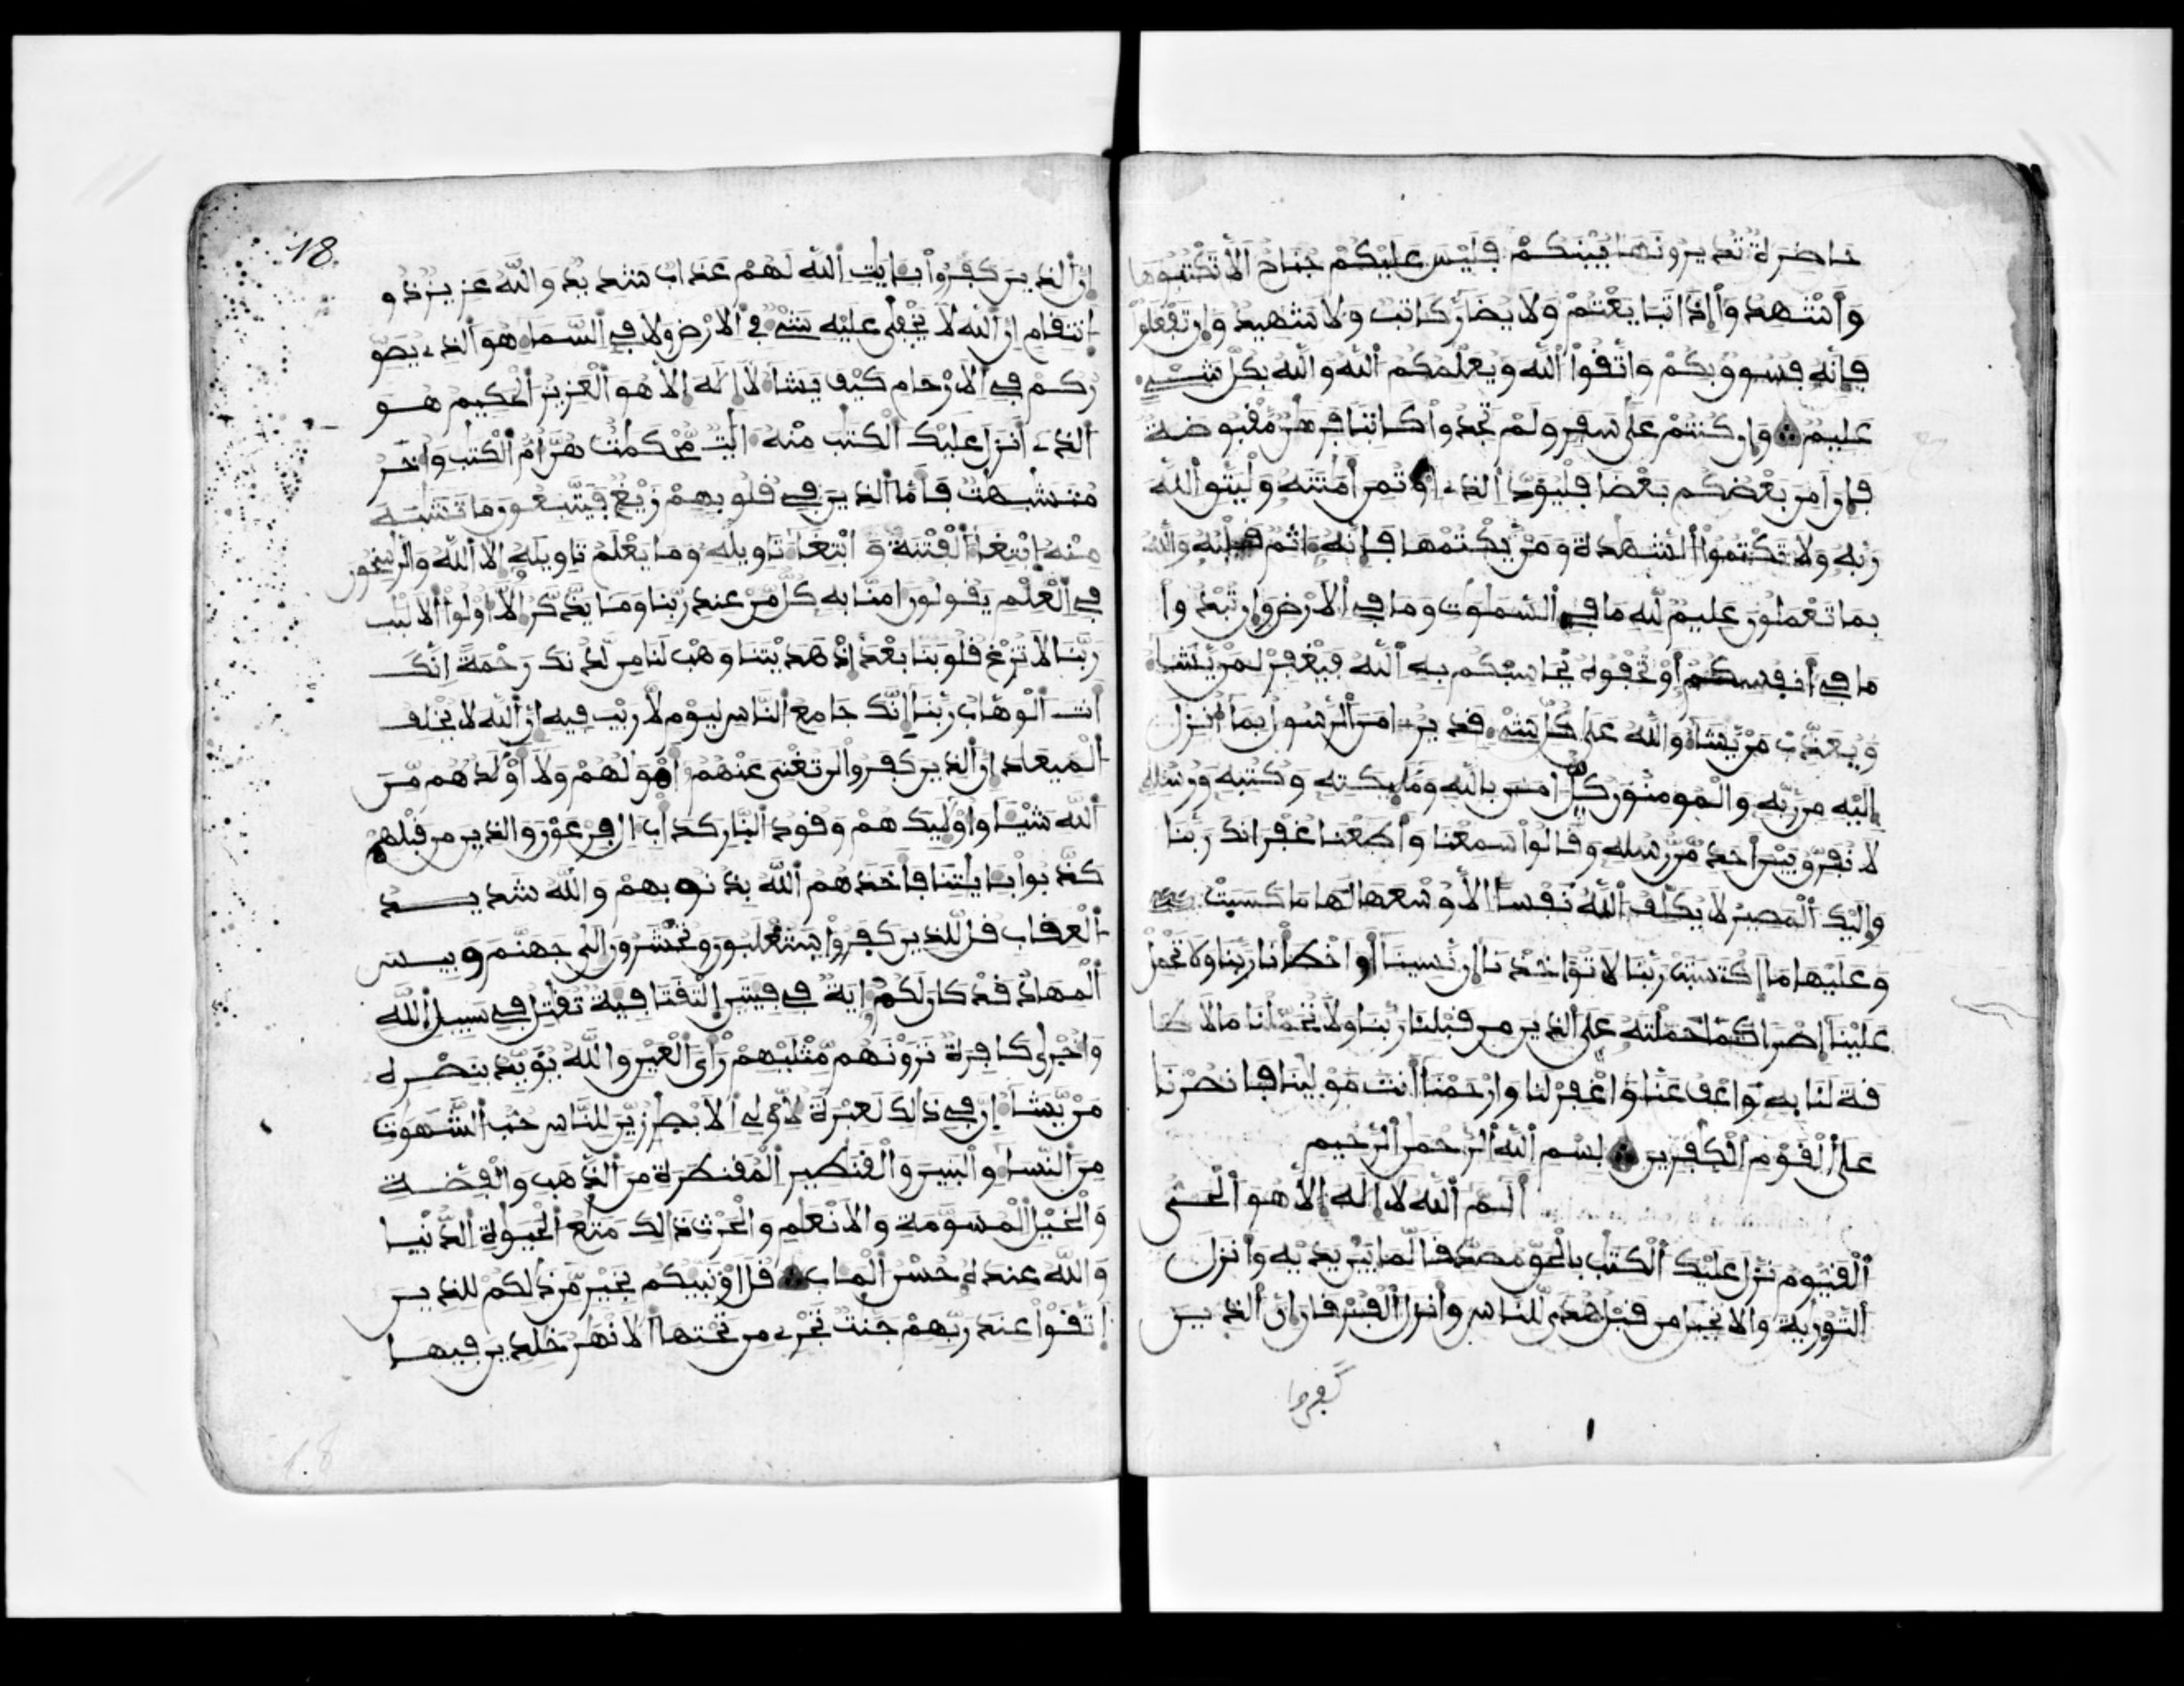 حاضرة تديرونها بينكم فليس عليكم جناح الا تكتبوها
وأشهدوا إذا تبايعتم ولا يضار كاتب ولا شهيد وإن تفعلوا
فإنه فسوق بكم واتقوا الله ويعلمكم الله والله بكل شيء
عليم وإن كنتم على سفر ولم تجدوا كاتبا فرهن مقبوضة
فإن أمن بعضكم بعضا فليؤد الذي اؤتمن أمنته وليتق الله
ربه ولا تكتموا الشهدة ومن يكتمها فإنه ءاثم قلبه والله
بما تعملون عليم لله ما في السموت وما في الارض وإن تبدوا
ما في أنفسكم أو تخفوه يحاسبكم به الله فيغفر لمن يشاء
ويعذب من يشاء والله على كل شيء قدير ءامن الرسول بما أنزل
إليه من ربه والمومنون كل ءامن بالله ومليكته وكتبه ورسله
لا نفرق بين أحد من رسله وقالوا سمعنا وأطعنا غفرانك ربنا
وإليك المصير لا يكلف الله نفسا الا وسعها لها ما كسبت
وعليها ما اكتسبت ربنا لا تؤاخذنا إن نسينا أو اخطأنا ربنا ولا تحمل
علينا إصرا كما حملته على الذين من قبلنا ربنا ولا تحملنا ما لا طا
قة لنا به واعف عنا واغفر لنا وارحمنا أنت مولينا فانصرنا
على القوم الكفرين بسم الله الرحمن الرحيم
ألم الله لا إله إلا هو الحي
القيوم نزل عليك الكتب بالحق مصدقا لما بين يديه وأنزل
التورية والانجيل من قبل هدى للناس وأنزل الفرقان إن الذين
كفروا
18
إن الذين كفروا بئايت الله لهم عذاب شديد والله عزيز ذو
انتقام إن الله لا يخفى عليه شيء في الارض ولا في السماء هو الذي يصو
ركم في الارحام كيف يشاء لا إله إلا هو العزيز الحكيم هو
الذي أنزل عليك الكتب منه ءايت محكمت هن أم الكتب وأخر
متشبهت فأما الذين في قلوبهم زيغ فيتبعون ما تشبه
منه ابتغاء الفتنة وابتغاء تاويله وما يعلم تاويله إلا الله والرسخون
في العلم يقولون ءامنا به كل من عند ربنا وما يذكر إلا أولوا الالبب
ربنا لا تزغ قلوبنا بعد إذ هديتنا وهب لنا من لدنك رحمة إنك
أنت الوهاب ربنا إنك جامع الناس ليوم لا ريب فيه إن الله لا يخلف
الميعاد إن الذين كفروا لن تغني عنهم أمولهم ولا أولدهم من
الله شيئا وأوليك هم وقود النار كدأب ال فرعون والذين من قبلهم
كذبوا بئايتنا فأخذهم الله بذنوبهم والله شديد
العقاب قل للذين كفروا ستغلبون وتحشرون إلى جهنم وبيس
المهاد قد كان لكم ءاية في فيتين التقتا فية تقتل في سبيل الله
وأخرى كافرة ترونهم مثليهم رأي العين والله يؤيد بنصره
من يشاء إن في ذالك لعبرة لأولي الابصر زين للناس حب الشهوت
من النساء والبنين والقنطير المقنطرة من الذهب والفضة
والخيل المسومة والانعم والحرث ذالك متع الحيوة الدنيا
والله عنده حسن المئاب قل اؤنبيكم بخير من ذلكم للذين
اتقوا عند ربهم جنت تجري من تحتها الانهر خلدين فيها
18